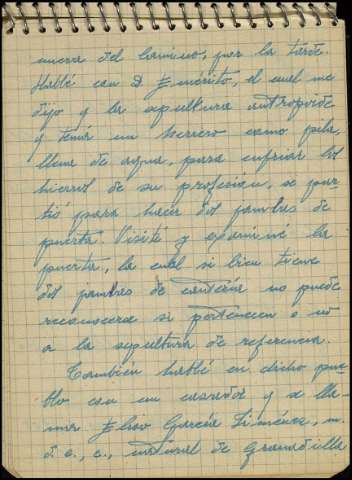 nuera del Camino, por la tarde.
Hablé con D. Emérito, el cual me
dijo q la sepultura antropoide
q tenía un herrero como pila,
llena de agua, para enfriar los
hierros de su profesión, se par-
tió para hacer dos jambas de
puerta. Visité y examiné la
puerta, la cual si bien tiene
dos jambas de cantería no puede
reconocerse si pertenecen o no
a la sepultura de referencia.
Tambien hablé en dicho pue-
blo con un casado q se lla-
ma Elías García Jiménez, m.
d. e., c., natural de Granadilla